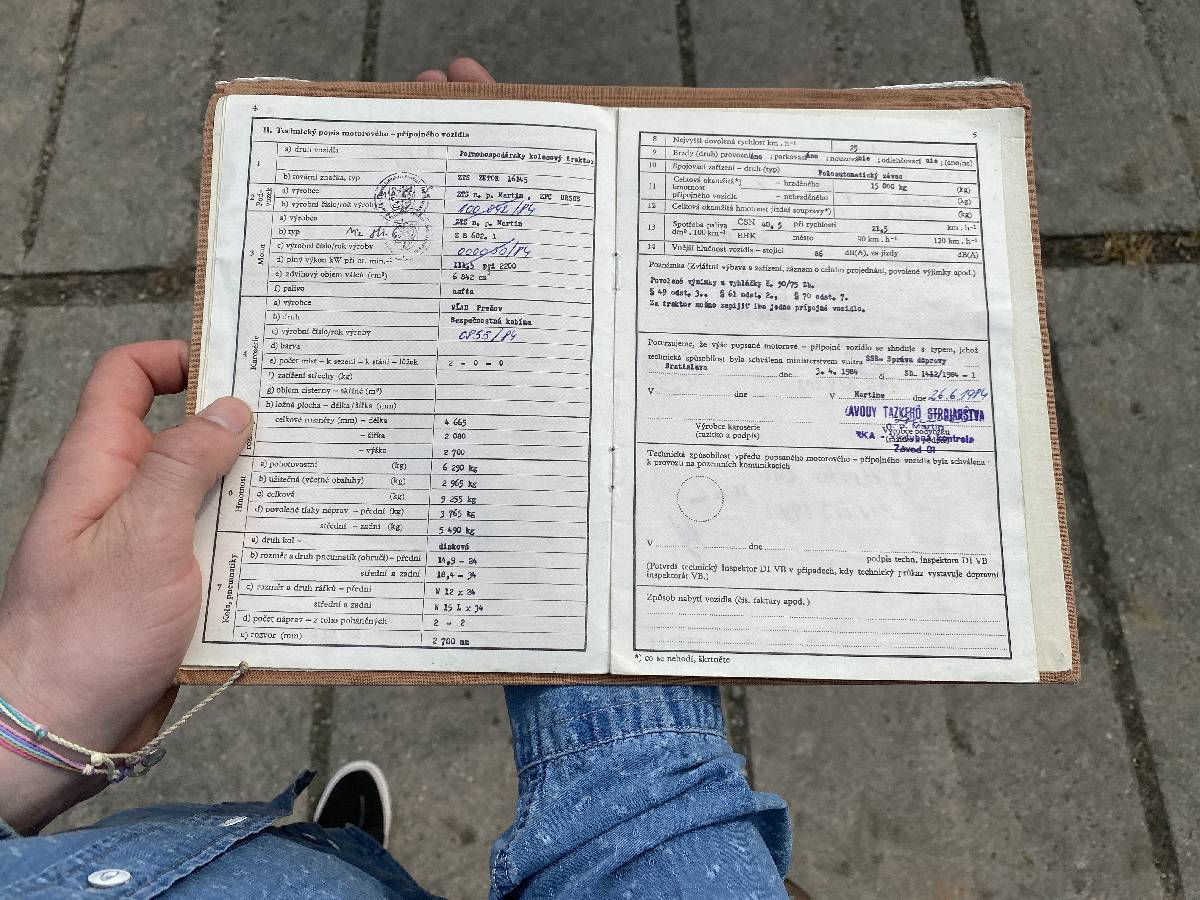 4
II. Technický popis motorového – přípojného vozidla
1
a) druh vozidla Poľnohospodársky kolesový traktor
b) tovární značka, typ ZTS ZETOR 16145
2 Podvozek
a) výrobce ZTS n. p. Martin, ZPC URSUS
b) výrobní číslo/rok výroby
3 Motor
a) výrobce ZTS n. p. Martin
b) typ Z 8602.1
c) výrobní číslo/rok výroby
d) plný výkon kW při ot. min.⁻¹ 111,5 pri 2200
e) zdvihový objem válců (cm³) 6 842 cm³
f) palivo nafta
Karosérie
a) výrobce VLAD Prešov
b) druh Bezpečnostná kabína
c) výrobní číslo/rok výroby 0855/84
d) barva
e) počet míst – k sezení – k stání – lůžek 2 - 0 - 0
f) zatížení střechy (kg)
g) objem cisterny – skříně (m³)
h) ložná plocha – délka/šířka (mm)
celkové rozměry (mm) – délka 4 665
– šířka 2 080
– výška 2 700
6 Hmotnost
a) pohotovostní (kg) 6 290 kg
b) užitečná (včetně obsluhy) (kg) 2 965 kg
c) celková (kg) 9 255 kg
d) povolené tlaky náprav – přední (kg) 3 765 kg
střední – zadní (kg) 5 490 kg
7 Kola, pneumatiky
a) druh kol – diskové
b) rozměr a druh pneumatik (obručí) – přední 14,9 - 24
střední a zadní 18,4 - 34
c) rozměr a druh ráfků – přední W 12 x 24
střední a zadní W 15 L x 34
d) počet náprav – z toho poháněných 2 - 2
e) rozvor (mm) 2 700 mm
5
8 Nejvyšší dovolená rychlost km . h⁻¹ 25
9 Brzdy (druh) provozní áno ; parkovací áno ; nouzové nie ; odlehčovací nie ; (ano/ne)
10 Spojovací zařízení – druh (typ) Poloautomatický záves
11 Celková okamžitá*) hmotnost přípojného vozidla – brzděného 15 000 kg (kg)
– nebrzděného (kg)
12 Celková okamžitá hmotnost jízdní soupravy*) (kg)
13 Spotřeba paliva dm³ . 100 km⁻¹ ČSN 40,5 při rychlosti 21,5 km . h⁻¹
EHK město 90 km . h⁻¹ 120 km . h⁻¹
14 Vnější hlučnost vozidla – stojící 86 dB(A), za jízdy dB(A)
Poznámka (Zvláštní výbava a zařízení, záznam o celním projednání, povolené výjimky apod.)
Povolené výnimky z vyhlášky č. 90/75 Zb.
§ 49 odst. 3., § 61 odst. 2., § 70 odst. 7.
Za traktor možno zapájiť iba jedno prípojné vozidlo.
Potvrzujeme, že výše popsané motorové – přípojné vozidlo se shoduje s typem, jehož
technická způsobilost byla schválena ministerstvem vnitra SSR- Správa dopravy
Bratislava dne 3. 4. 1984 čj. SD- 1412/1984 - 1
V dne V Martine dne 26.6.1984
ZÁVODY ŤAŽKÉHO STROJÁRSTVA
n. p. Martin
Výrobce karosérie Výrobce podvozku
(razítko a podpis) (razítko a podpis)
kontrola
Závod 01
Technická způsobilost vpředu popsaného motorového – přípojného vozidla byla schválena
k provozu na pozemních komunikacích
V dne
podpis techn. inspektora DI VB
(Potvrdí technický inspektor DI VB v případech, kdy technický průkaz vystavuje dopravní
inspektorát VB.)
Způsob nabytí vozidla (čís. faktury apod.)
*) co se nehodí, škrtněte